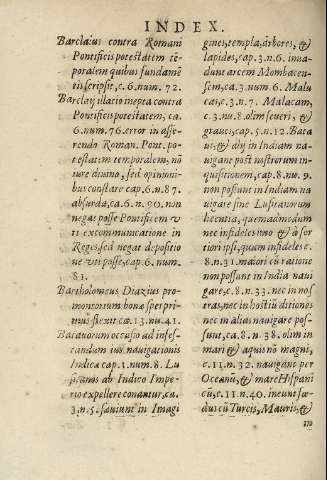 INDEX.
Barclaius contra Romani
Pontificis potestatem tē-
poralem quibus fundamē
tis scripsit, c. 6. num. 72.
Barclaij illatio inepta contra
Pontificis potestatem, ca.
6. num. 76. error in asse-
rendo Roman. Pont. po-
testatem temporalem, nō
iure diuino, sed opinioni-
bus constare cap. 6. n. 87.
absurda, ca. 6. n. 90. non
negat posse Pontificem v-
ti excommunicatione in
Reges, sed negat depositio
ne vti posse, cap. 6. num.
81.
Bartholomeus Diazius pro-
montorium bonæ spei pri-
mus flexit ca. 13. nu. 41.
Batauorum occasio ad infes-
tandum ius nauigationis
Indica cap. 1. num. 8. Lu
sitanos ab Indico Impe-
rio expellere conantur, ca.
3. n. 5. sæuiunt in Imagi
gines, templa, árbores, &
lapides, cap. 3. n. 6. inua-
dunt arcem Mombacen-
sem, cap. 3. n. 6. Malu
cas, c. 3. n. 7. Malacam,
c. 3. nu. 8. olim seueri, &
graues, cap. 5. n. 12. Bata
uus, & dij in Indiam na-
uigans post nostrum in-
quisitionem, cap. 8. nu. 9.
non possunt in Indiam na
uigare sine Lusitanorum
licentia, quemadmodum
nec infideles imo & à for
tiori ipsi, quam infideles c.
8. n. 31. maiori cū ratione
non possunt in India naui
gare, c. 8. n. 33. nec in nos
tras, nec in hostiū ditiones
nec in alias nauigare pos-
sunt, ca. 8. n. 38. olim in
mari & aquis nō magni,
c. 11. n. 32. nauigant per
Oceanū, & mare Hispani
cū, c. 11. n. 40. ineunt fœ-
dus cū Turcis, Mauris, &